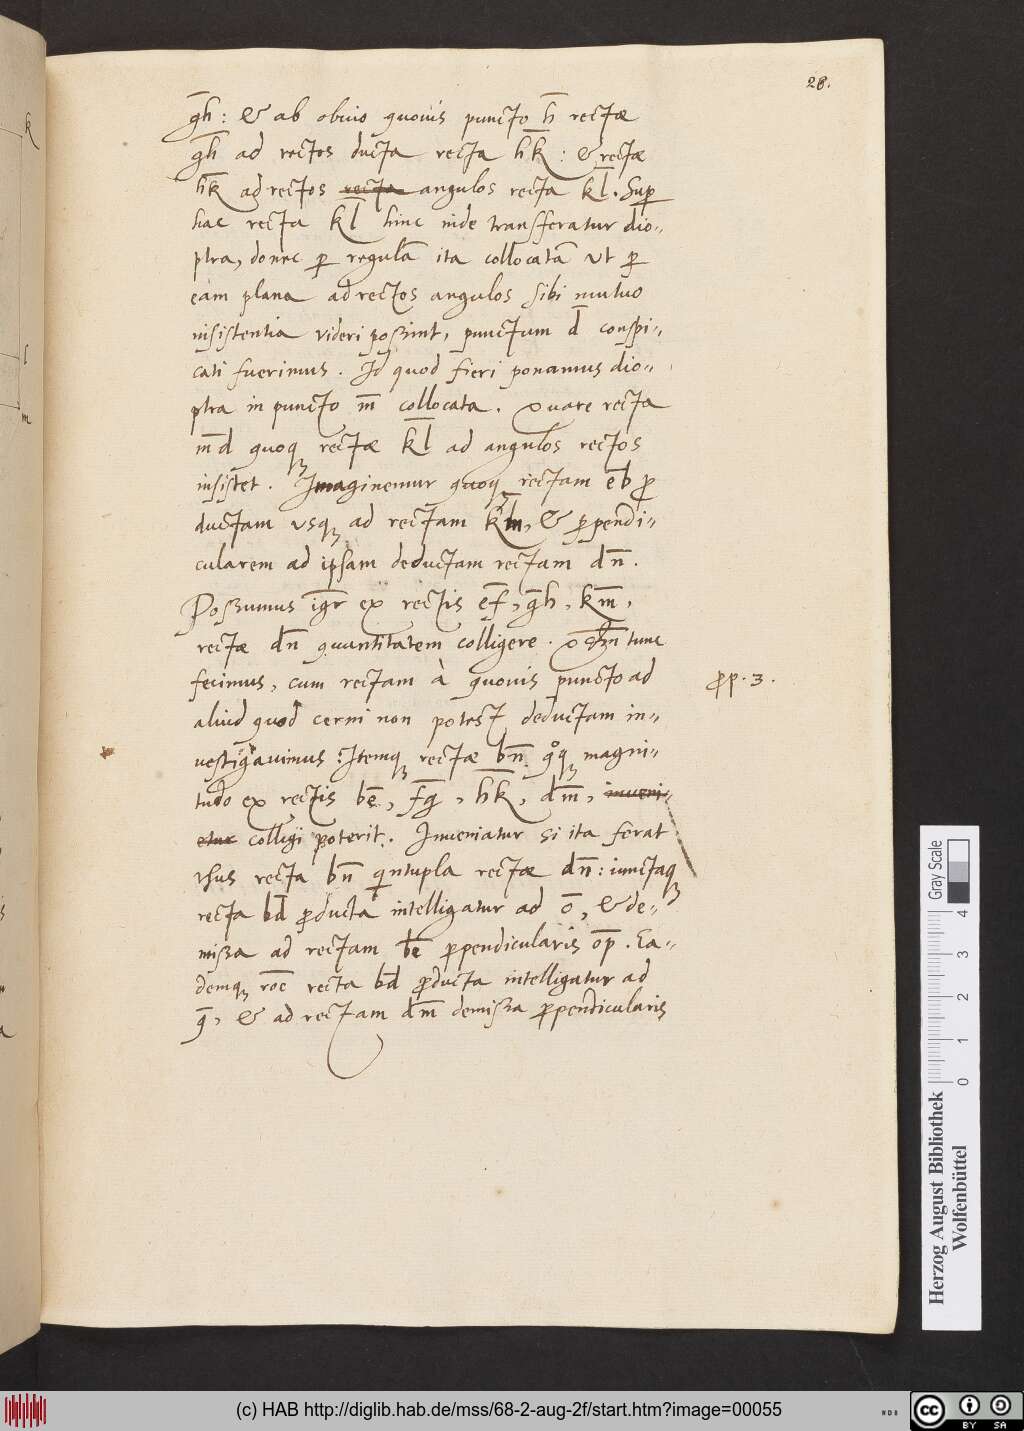 28.
gh: & ab obuio quouis puncto h rectæ
gh ad rectos ducta recta hk: & rectæ
hk ad rectos recta angulos recta kl. Sup
hac recta kl hinc inde transferatur dio-
ptra, donec p regulã ita collocatã vt p
eam plana ad rectos angulos sibi mutuo
insistentia videri poßint, punctum d conspi-
cati fuerimus. Id quod fieri ponamus dio-
ptra in puncto m collocata. quare recta
md quoq rectæ kl ad angulos rectos
insistet. Imaginemur quoq rectam eb p
ductam vsq ad rectam km, & ppendi-
cularem ad ipsam deductam rectam dn.
Poßumus igr ex rectis ef, gh, km,
rectæ dn quantitatem colligere. tunc
fecimus, cum rectam à quouis puncto ad
prop. 3.
aliud quod cerni non potest deductam in-
vestigauimus: Itemq rectæ bn. qoq magni-
tudo ex rectis be, fg, hk, dm, inueni-
etur colligi poterit. Inueniatur si ita ferat
vsus recta bn quintupla rectæ dn: iunctaq
recta bd producta intelligatur ad o, & de-
mißa ad rectam be ppendicularis op. Ea-
demq roe recta bd producta intelligatur ad
q, & ad rectam dm demißa ppendicularis
k
l
m
Gray Scale
0 1 2 3 4
Herzog August Bibliothek
Wolfenbüttel
(c) HAB http://diglib.hab.de/mss/68-2-aug-2f/start.htm?image=00055
WDB
cc
BY SA